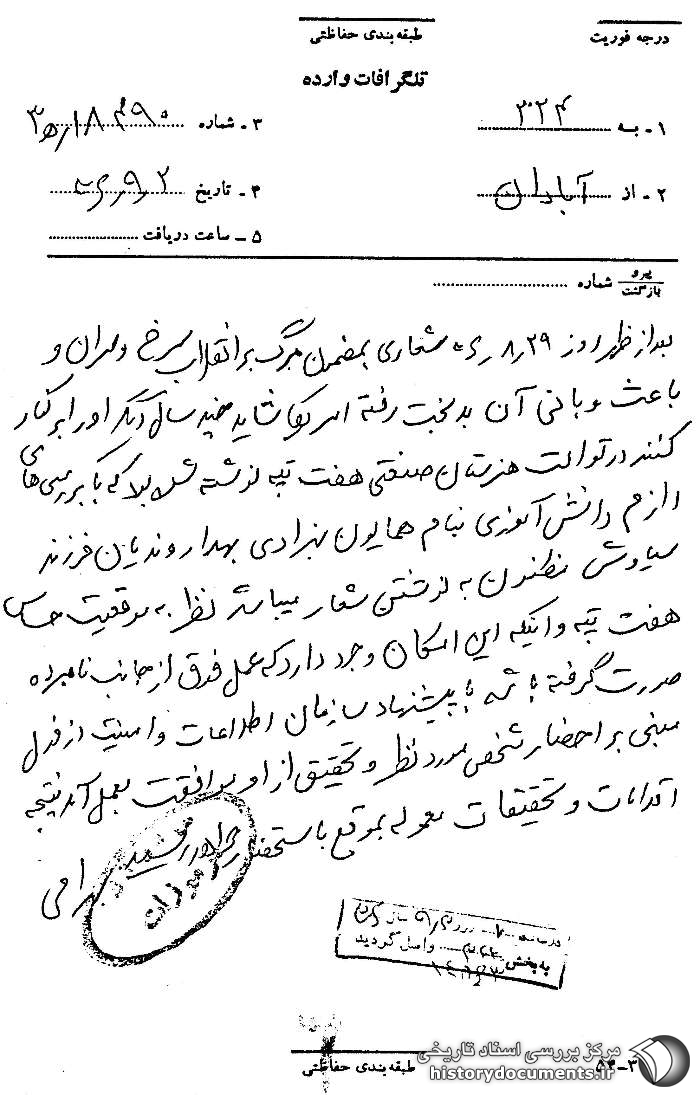 درجه فوریت
طبقه بندی حفاظتی
تلگرافات وارده
۱ - به ۳۲۴
۳ - شماره ۱۸۴۹۰
۲ - از آبادان
۴ - تاریخ ۲
۵ - ساعت دریافت
پیرو
بازگشت
شماره
بعد از ظهر روز ۸٫۲۹ شعاری بمضمون مرگ بر انقلاب سرخ و
باعث و بانی آن بدبخت رفته امریکا شاید چند سال دیگر او را بر کنار
کنند در توالت هنرستان صنعتی هفت تپه نوشته شده که با بررسی های
لازم دانش آموزی بنام همایون بهزادی بهداروندیان فرزند
سیاوش مظنون به نوشتن شعار میباشد نظر به موقعیت حساس
هفت تپه و اینکه این امکان وجود دارد که عمل فوق از جانب نامبرده
صورت گرفته باشد با پیشنهاد سازمان اطلاعات و امنیت دزفول
مبنی بر احضار شخص مورد نظر و تحقیق از او موافقت بعمل آمد نتیجه
اقدامات و تحقیقات معموله بموقع باستحضار خواهد رسید
به بخش ۳۲۴ واصل گردید
طبقه بندی حفاظتی
۳-۵۴
مرکز بررسی اسناد تاریخی
historydocuments.ir